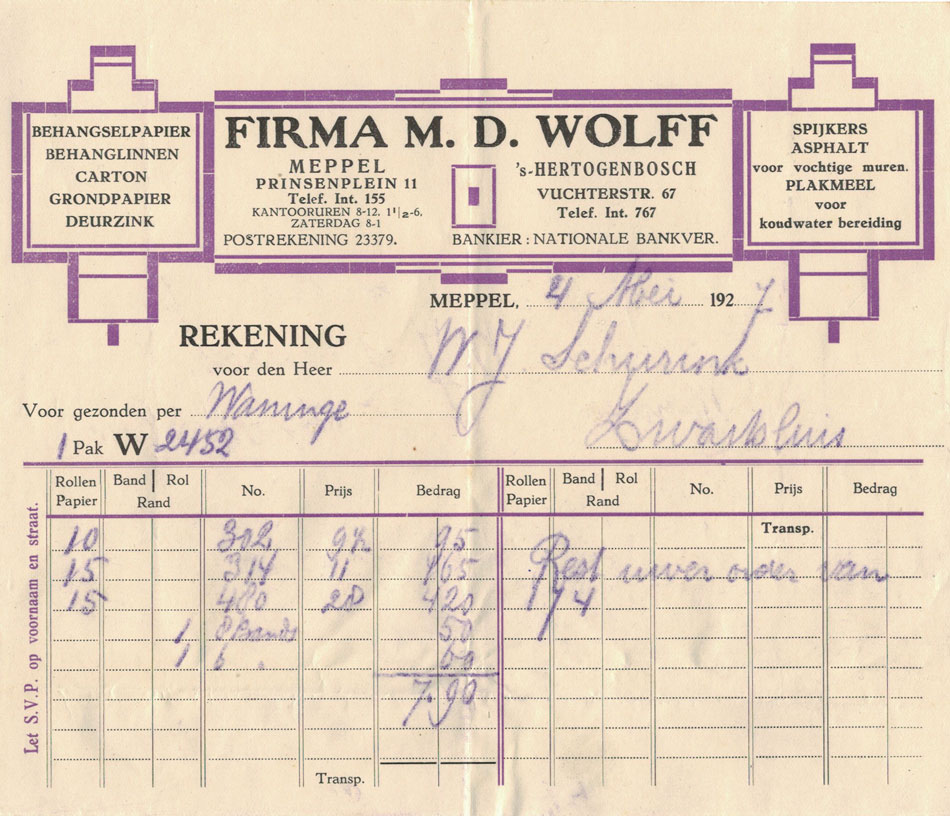 BEHANGSELPAPIER
BEHANGLINNEN
CARTON
GRONDPAPIER
DEURZINK
FIRMA M. D. WOLFF
MEPPEL
PRINSENPLEIN 11
Telef. Int. 155
KANTOORUREN 8-12, 1 1/2-6,
ZATERDAG 8-1
POSTREKENING 23379.
's-HERTOGENBOSCH
VUCHTERSTR. 67
Telef. Int. 767
BANKIER: NATIONALE BANKVER.
SPIJKERS
ASPHALT
voor vochtige muren.
PLAKMEEL
voor
koudwater bereiding
MEPPEL, 4 Mei 1927
REKENING
voor den Heer W J. Schurink
Voor gezonden per Waninge
1 Pak W 2452
Let S.V.P. op voornaam en straat.
Rollen Papier Band Rol Rand No. Prijs Bedrag Rollen Papier Band Rol Rand No. Prijs Bedrag
Transp.
10 302 9½ 95
15 314 11 165 Rest uwer order van
15 480 28 420 1/4
1 50
1 6
7.90
Transp.